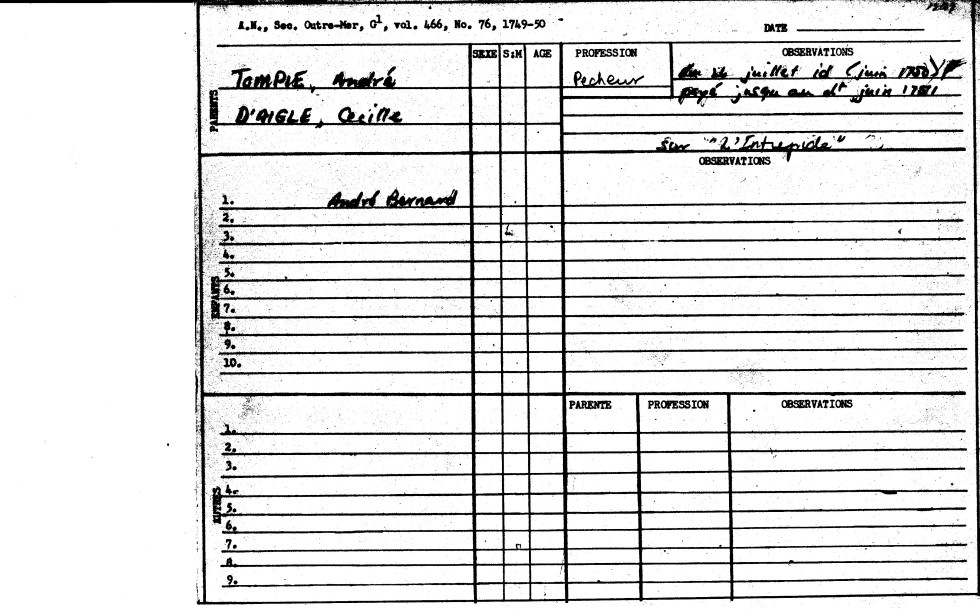 A.N., Sec. Outre-Mer, G1, vol. 466, No. 76, 1749-50
DATE
SEXE S:M AGE PROFESSION OBSERVATIONS
PARENTS
TEMPLE, André Pecheur juillet id (juin 1750)
payé jusqu au dt juin 1751
D'AIGLE, Cecille
sur "L'Intrepide"
OBSERVATIONS
ENFANTS
1. André Bernard
2.
3.
4.
5.
6.
7.
8.
9.
10.
PARENTE PROFESSION OBSERVATIONS
AUTRES
1.
2.
3.
4.
5.
6.
7.
8.
9.